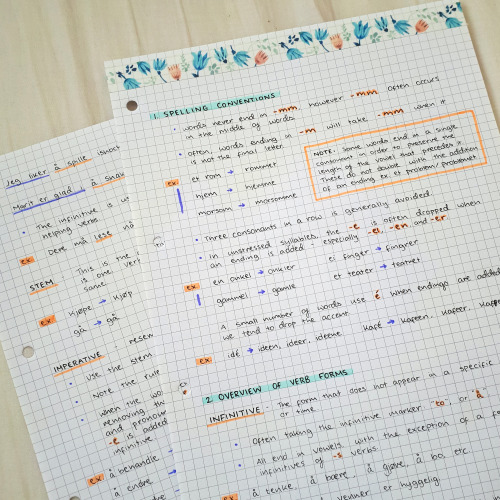 1. SPELLING CONVENTIONS
• words never end in -mm, however -mm often occurs
in the middle of words
• often, words ending in -m will take -mm when it
is not the final letter.
ex: et rom → rommet
hjem → hjemme
morsom → morsomme
NOTE: Some words end in a single
consonant in order to preserve the
length of the vowel that precedes it.
These do not double with the addition
of an ending ex et problem/problemet
• Three consonants in a row is generally avoided.
• In unstressed syllables, the -e is often dropped when
an ending is added - especially -el, -en and -er
ex en onkel → onkler
ei finger → fingrer
gammel → gamle
et teater → teatret
A small number of words use é when endings are added
we tend to drop the accent.
ex idé → ideen, ideer, ideene
kafé → kafeen, kafeer,
2. OVERVIEW OF VERB FORMS
INFINITIVE - The form that does not appear in a specific
or time.
• Often taking the infinitive marker 'to' or 'å'
• All end in vowels with the exception of a
infinitives of -s verbs.
ex å tenke, å bære, å gjøre, å bo, etc.
venner er hyggelig.
Jeg liker å spille
Marit er glad i å
• The infinitive is
helping verbs
ex Dere må lese
STEM: This is the
is one
same.
ex kjøpe → kjøp
gå → gå
IMPERATIVE
• Use the stem
• Note the rule
when the
removing the
and
-e is added
infinitive
ex å behandle →
å endre →